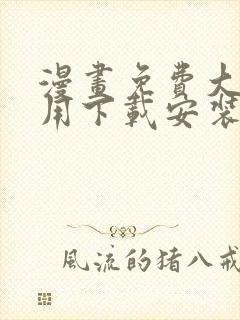 漫畫免費大
用下載安裝
風流的猪八戒